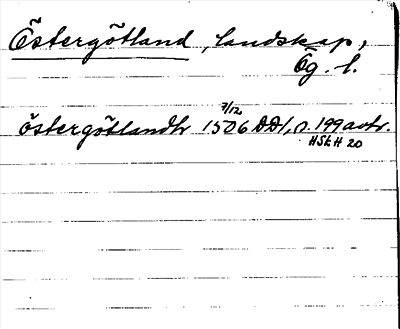 Östergötland, landskap,
Ög. l.
7/12
östergötlandh 1506 DD1, n. 199 avtr.
HSH 20